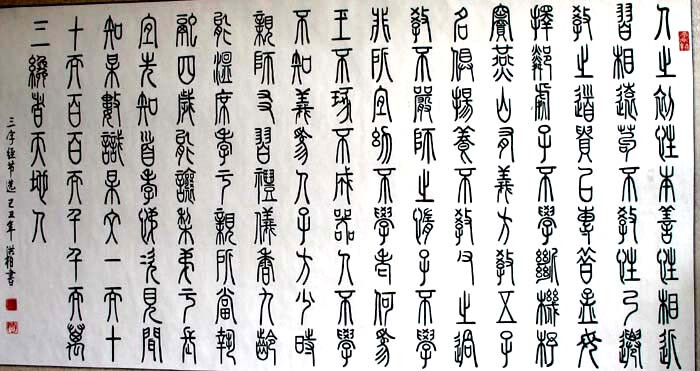 人之初性本善性相近
習相遠苟不教性乃遷
教之道貴以專昔孟母
擇鄰處子不學斷機杼
竇燕山有義方教五子
名俱揚養不教父之過
教不嚴師之惰子不學
非所宜幼不學老何為
玉不琢不成器人不學
不知義為人子方少時
親師友習禮儀香九齡
能溫席孝于親所當執
融四歲能讓梨弟于長
宜先知首孝弟次見聞
知某數識某文一而十
十而百百而千千而萬
三纔者天地人
三字經节选 己丑年 洪書